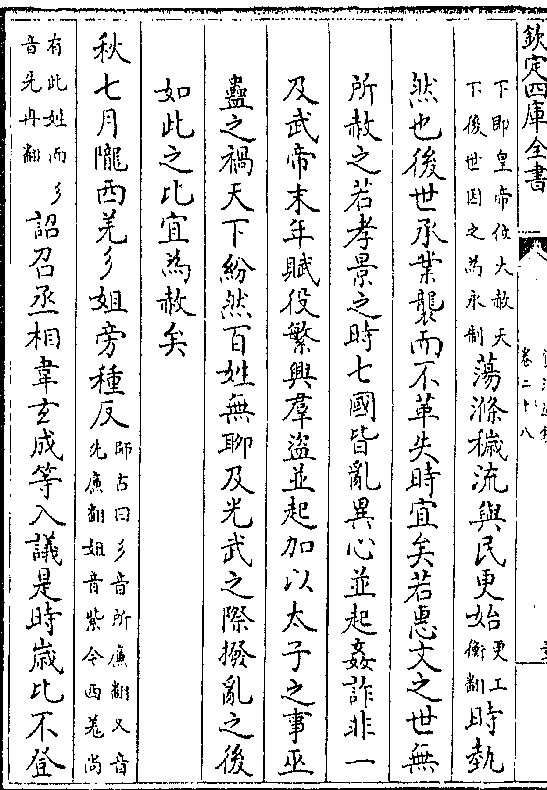 欽定四庫全書
卷二十八
下即皇帝位大赦天
下後世因之為永制
蕩滌穢流與民更始
更工
衡翻
時埶
然也後世承業襲而不革失時宜矣若惠文之世無
所赦之若孝景之時七國皆亂異心並起姦詐非一
及武帝末年賦役繁興羣盜並起加以太子之事巫
蠱之禍天下紛然百姓無聊及光武之際撥亂之後
如此之比宜為赦矣
秋七月隴西羌彡姐旁種反
師古曰彡音所廉翻又音
先廉翻姐音紫今西羌尚
有此姓而彡
音先冉翻
詔召丞相韋玄成等入議是時歲比不登